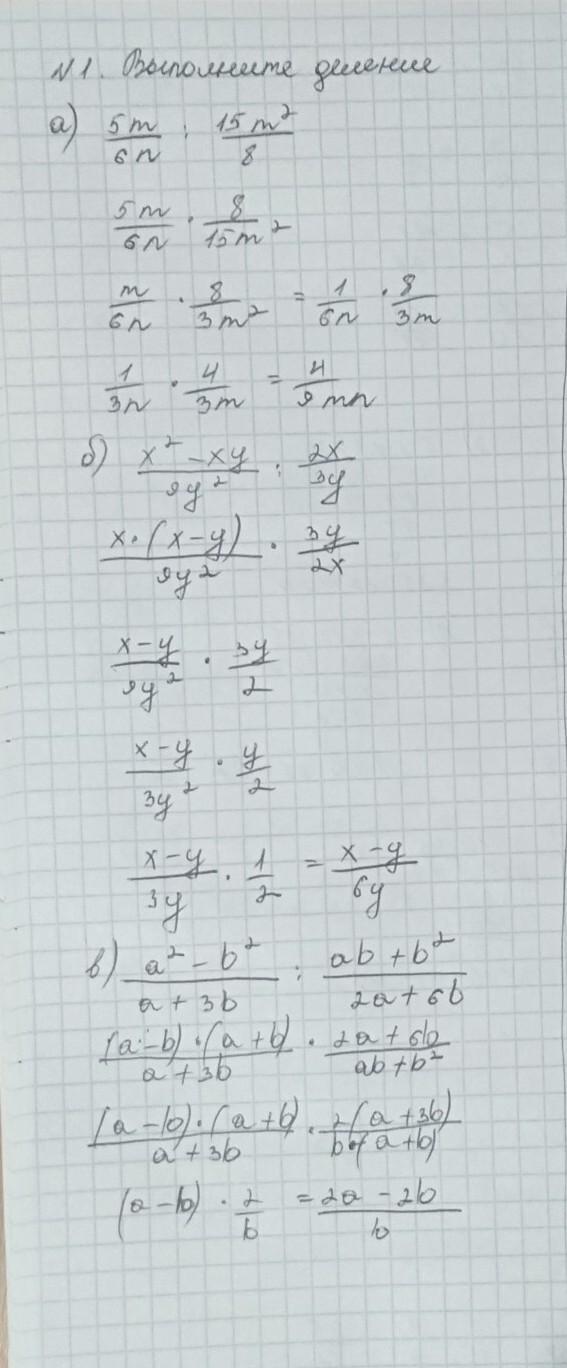 №1. Выполните деление
а) 5m/6n : 15m²/8
5m/6n · 8/15m²
m/6n · 8/3m² = 1/6n · 8/3m
1/3n · 4/3m = 4/9mn
б) x²-xy/9y² : 2x/3y
x·(x-y)/9y² · 3y/2x
x-y/9y² · 3y/2
x-y/3y² · y/2
x-y/3y · 1/2 = x-y/6y
в) a²-b²/a+3b : ab+b²/2a+6b
(a-b)·(a+b)/a+3b · 2a+6b/ab+b²
(a-b)·(a+b)/a+3b · 2(a+3b)/b·(a+b)
(a-b) · 2/b = 2a-2b/b